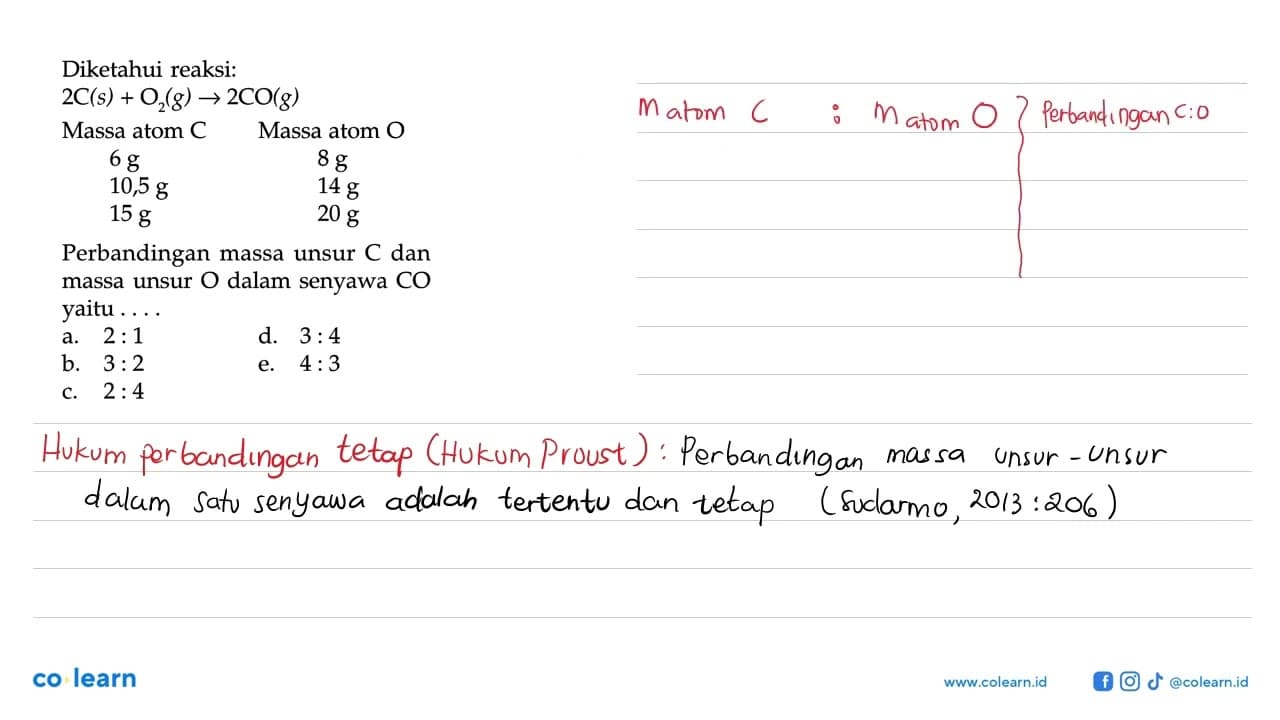 Diketahui reaksi:
2C(s) + O₂(g) → 2CO(g)
Massa atom C Massa atom O
6 g 8 g
10,5 g 14 g
15 g 20 g
Perbandingan massa unsur C dan
massa unsur O dalam senyawa CO
yaitu . . . .
a. 2 : 1 d. 3 : 4
b. 3 : 2 e. 4 : 3
c. 2 : 4
M atom C : M atom O } Perbandingan C:O
Hukum perbandingan tetap (Hukum Proust) : Perbandingan massa unsur - unsur
dalam satu senyawa adalah tertentu dan tetap (Sudarmo, 2013 : 206)
co learn
www.colearn.id
@colearn.id